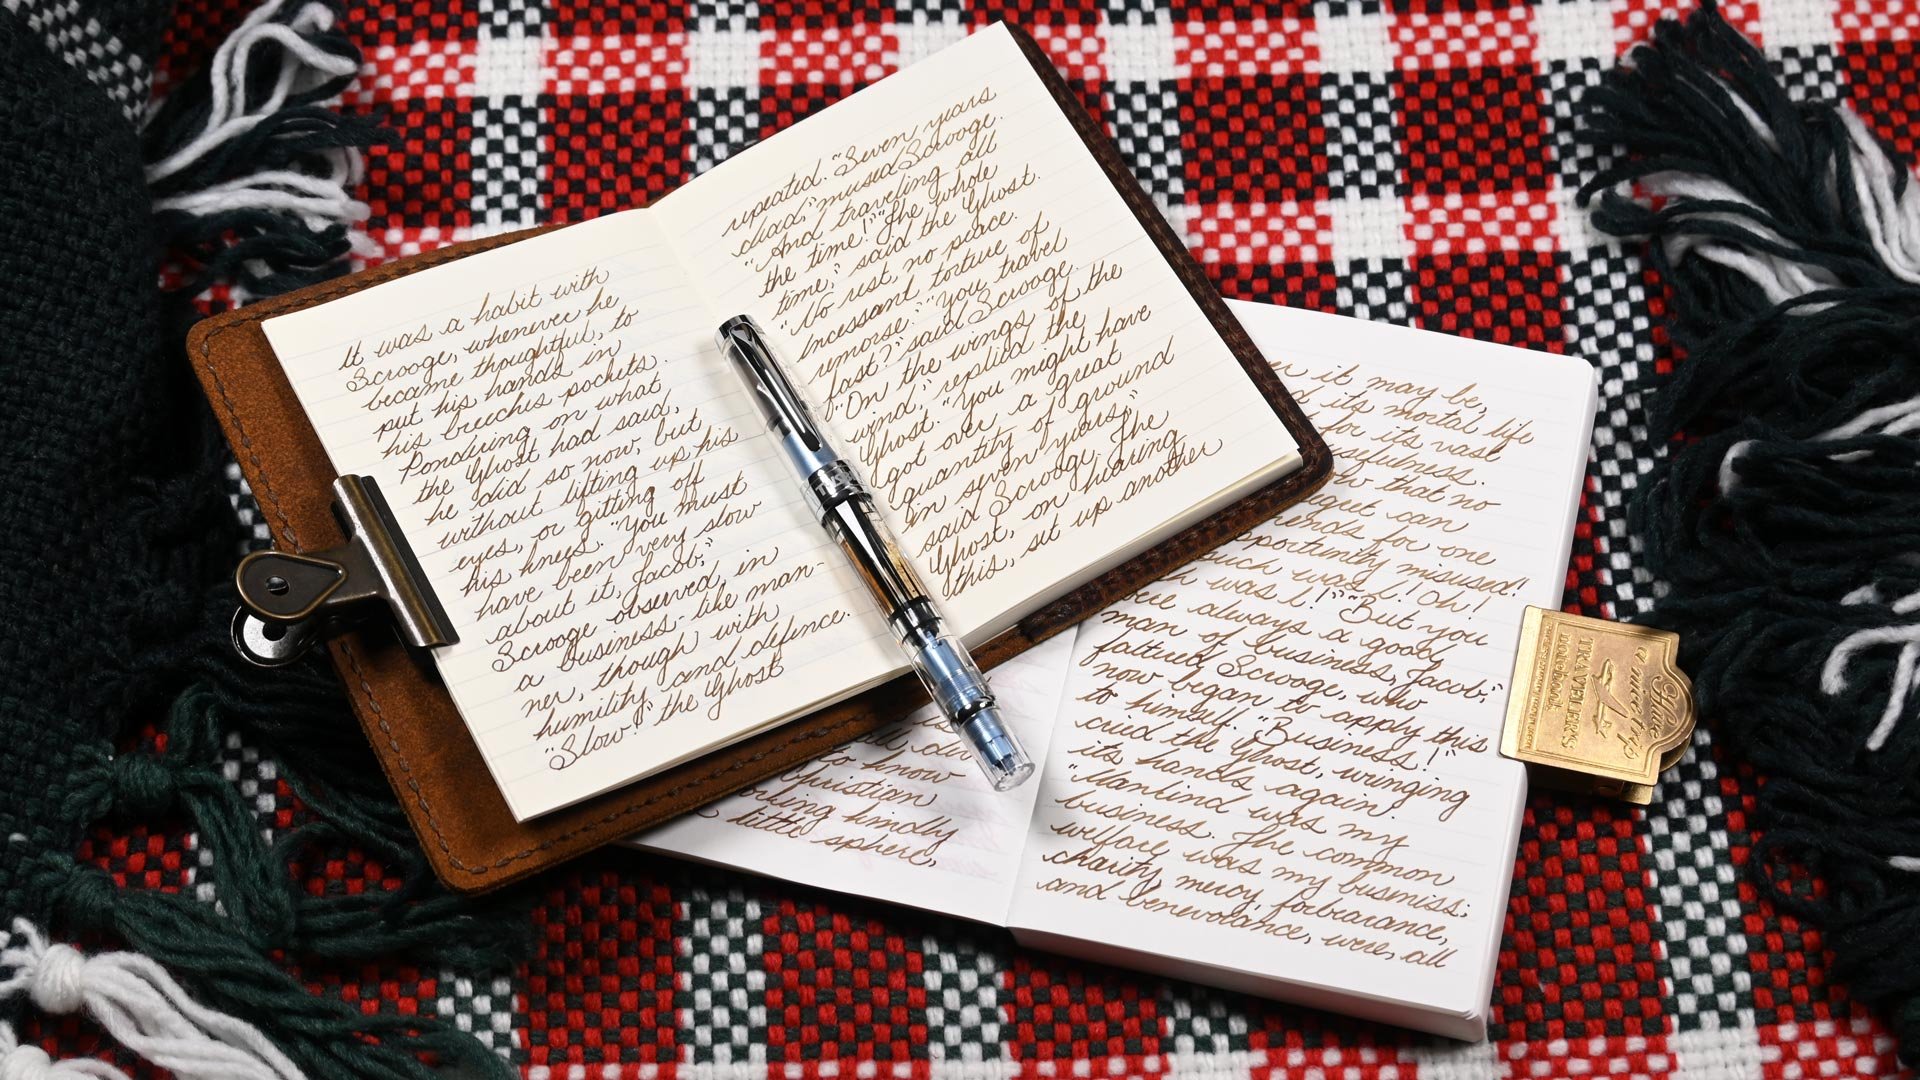 It was a habit with
Scrooge, whenever he
became thoughtful, to
put his hands in
his breeches pockets.
Pondering on what
the Ghost had said,
he did so now, but
without lifting up his
eyes, or gitting off
his knees. "You must
have been very slow
about it, Jacob,"
Scrooge observed, in
a business-like man-
ner, though with
humility and defence.
"Slow!" the Ghost
repeated. "Seven years
dead," mused Scrooge.
"And traveling all
the time!" "The whole
time," said the Ghost.
"No rest, no peace.
Incessant torture of
remorse." "You travel
fast?" said Scrooge.
"On the wings of the
wind," replied the
Ghost. "You might have
got over a great
quantity of ground
in seven years,"
said Scrooge. The
Ghost, on hearing
this, set up another
to know
Christian
kindly
little sphere,
it may be,
its mortal life
for its vast
usefulness.
that no
can
for one
opportunity misused!
such was I! Oh!
was I!" "But you
were always a good
man of business, Jacob,"
faltured Scrooge, who
now began to apply this
to himself. "Business!"
cried the Ghost, wringing
its hands again.
"Mankind was my
business. The common
welfare was my busmiss;
charity, mercy, forbearance,
and benevolance, were, all
TWSBI
Have
a nice trip
TRAVELER'S
notebook